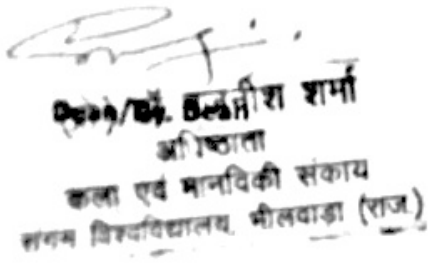 Dean/Dy. Dean
शर्मा
अधिष्ठाता
कला एवं मानविकी संकाय
संगम विश्वविद्यालय, भीलवाड़ा (राज.)